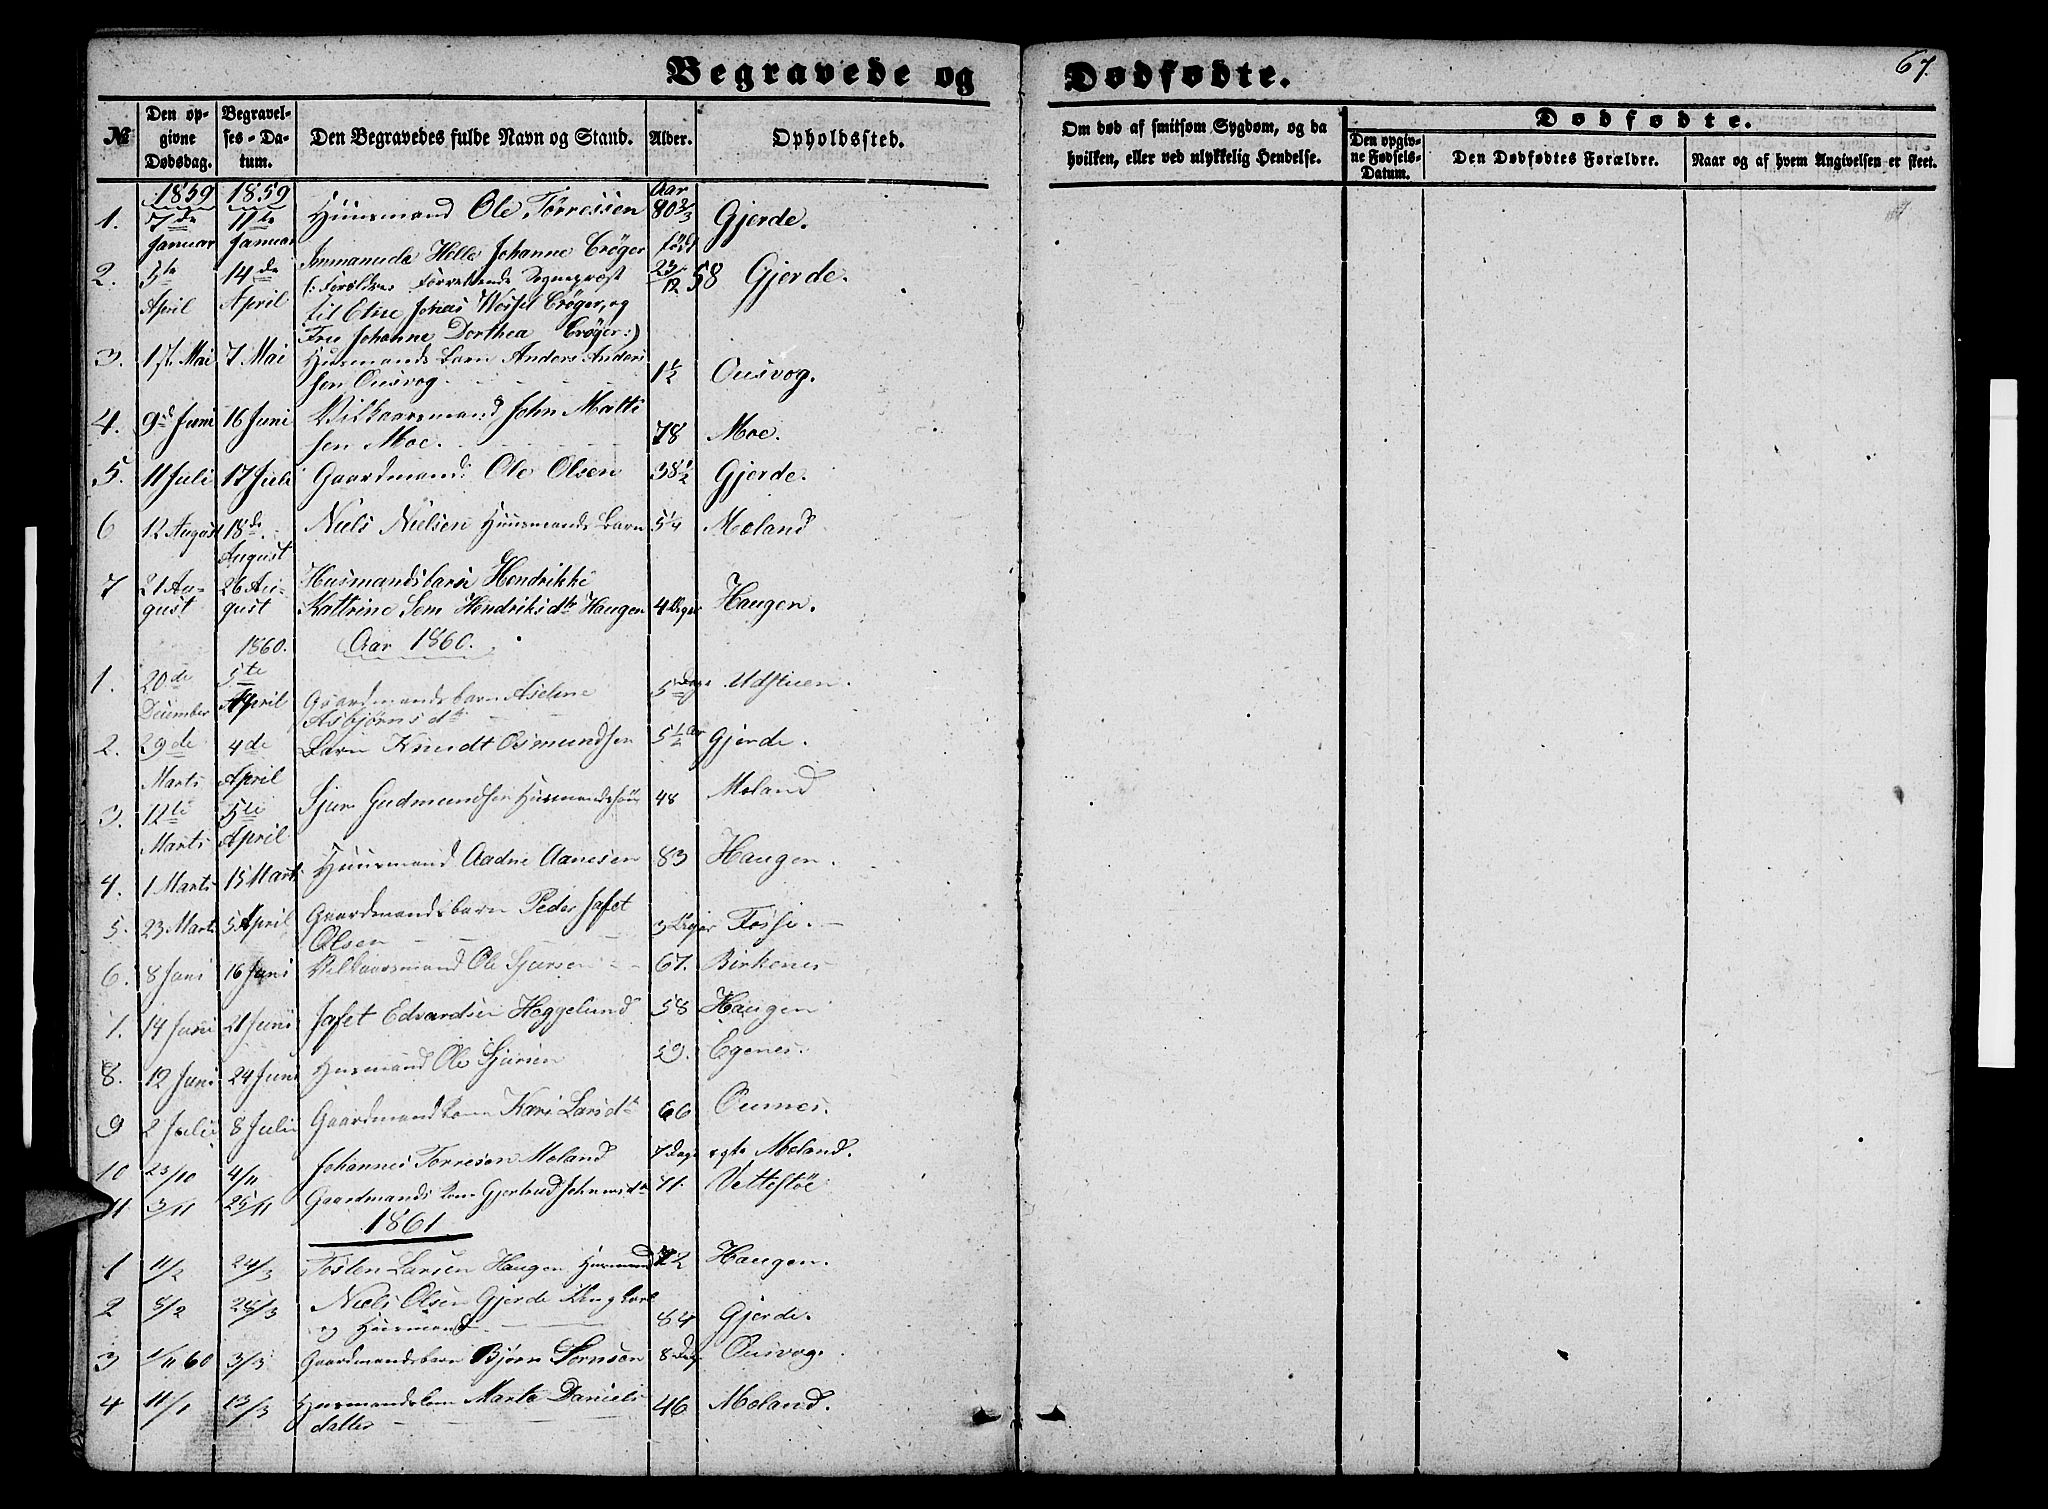 67.
Begravede og Dødfødte.
№
Den opgivne Dødsdag.
Begravelses-Datum.
Den Begravedes fulde Navn og Stand.
Alder.
Opholdssted.
Om død af smitsom Sygdom, og da hvilken, eller ved ulykkelig Hendelse.
Dødfødte.
Den opgivne Fødsels-Datum.
Den Dødfødtes Forældre.
Naar og af hvem Angivelsen er skeet.
1859 1859 Aar
1. 7de 11te Huusmand Ole Tørressen 80 2/3 Gjerde.
Januar Januar Immanuela Helle Johanne Crøger født
2. 5te 14de (: Forældre: Forrettende Sognepræst 23/12 58 Gjerde.
April April til Etne Johas Wessel Crøger, og
Fru Johanne Dorthea Crøger:)
3. 1ste Mai 7 Mai Husmands barn Anders Anders
sen Ousvog. 1 1/2 Ousvog.
4. 9de Juni 16 Juni Vilkaarsmand John Matti
sen Moe. 78 Moe.
5. 11 Juli 17 Juli Gaardmand Ole Olsen 38 1/2 Gjerde.
6 12 August 18de Niels Nielsen Huusmands barn 5 1/4 Moland
August
7 21 Au- 26 Au- Husmandsbarn Hendrikke
gust gust Kattrine Sem Hendriksdtr Haugen 4 Uger Haugen.
1860. Aar 1860.
1. 20de 5te
December April Gaardmandsbarn Aselene 5 Dage Udstuen.
Asbjørnsdtr
2. 29de 4de Barn Knudt Osmundsen 5 1/2 Aar Gjerde.
Marts April
3. 12te 5te Sjur Gudmundsen Husmands 48 Moland
Marts April
4. 1 Marts 15 Marts Huusmand Aadne Aanesen 83 Haugen.
5. 23 Marts 5 April Gaardmandsbarn Peder Jafet
Olsen 3 Uger Fosse.
6. 8 Juni 16 Juni Vilkaarsmand Ole Sjursen 67. Birkenes
7. 14 Juni 21 Juni Jafet Edvardsen Heggelund 58 Haugen
8. 12 Juni 24 Juni Husmand Ole Sjursen 59. Egenes.
9 2 Juli 8 Juli Gaardmandkone Kari Larsdtr 66 Oumes.
10 23/10 4/11 Johannes Torresen Moland 7 Dage Moland.
11 3/11 25/11 Gaardmands kone Gjertrud Johannsdtr 71. Vettestøe
1861
1 11/2 24/3 Tosten Larsen Haugen Husmand 72 Haugen.
2 8/2 28/3 Niels Olsen Gjerde
og Huusmand 84 Gjerde.
3 1/11 60 3/3 Gaardmandsbarn Bjørn Sørnsen 8 Dage Ousvog.
4 11/1 13/3 Husmandskone Marta Daniels
datter 46 Moland.